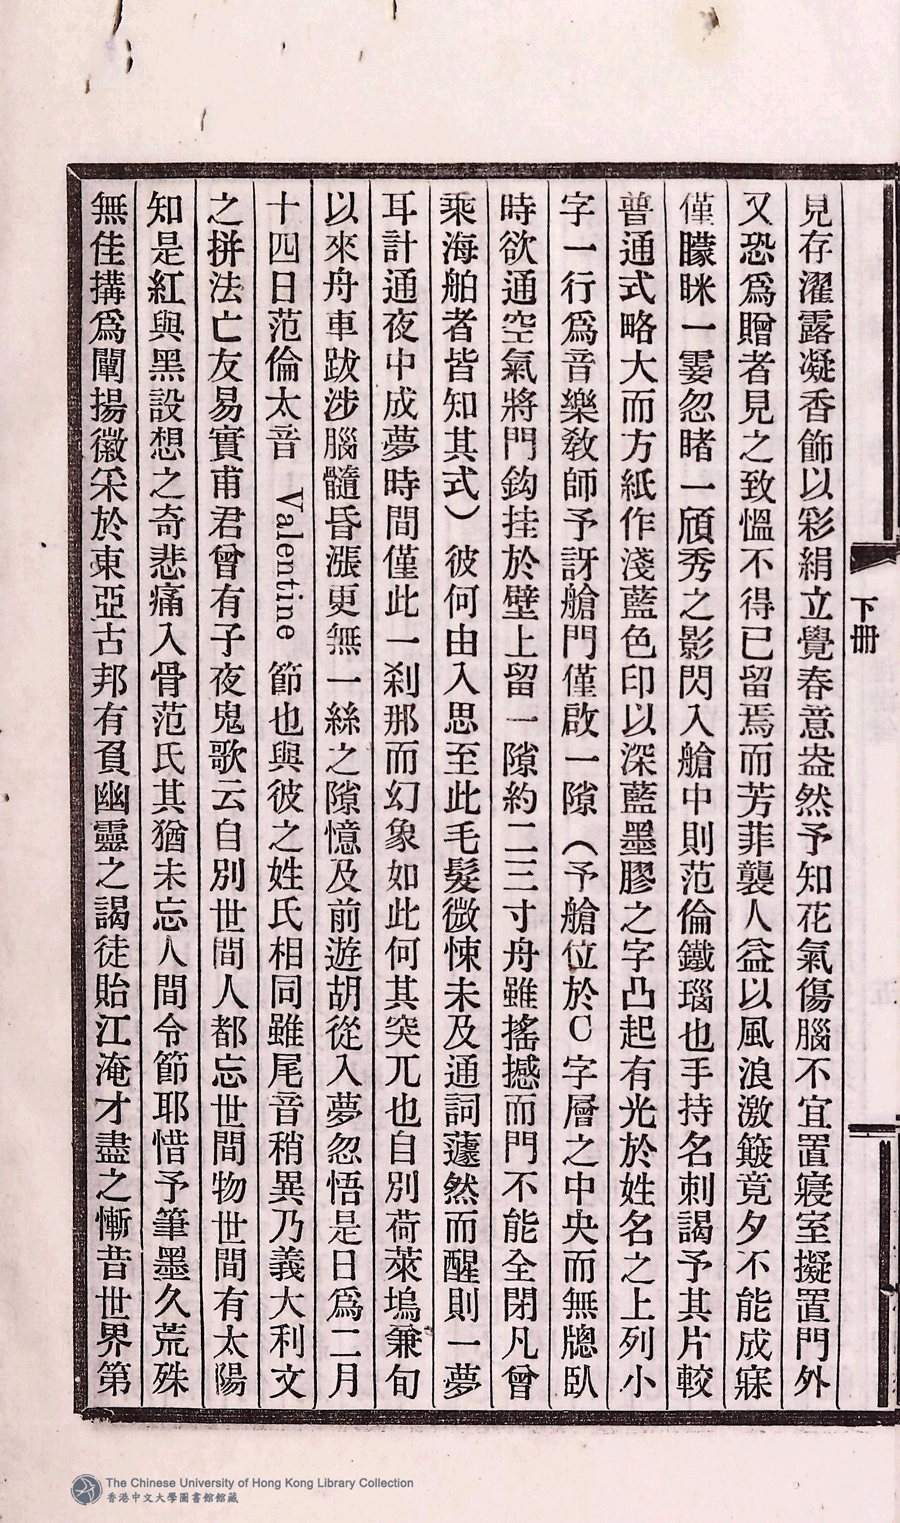 見存濯露凝香飾以彩絹立覺春意盎然予知花氣傷腦不宜置寢室擬置門外
又恐爲贈者見之致慍不得已留焉而芳菲襲人益以風浪激簸竟夕不能成寐
僅矇眯一霎忽睹一頎秀之影閃入艙中則范倫鐵瑙也手持名刺謁予其片較
普通式略大而方紙作淺藍色印以深藍墨膠之字凸起有光於姓名之上列小
字一行爲音樂教師予訝艙門僅啟一隙（予艙位於C字層之中央而無牕臥
時欲通空氣將門鈎挂於壁上留一隙約二三寸舟雖搖撼而門不能全閉凡曾
乘海舶者皆知其式）彼何由入思至此毛髮微悚未及通詞蘧然而醒則一夢
耳計通夜中成夢時間僅此一刹那而幻象如此何其突兀也自別荷萊塢兼旬
以來舟車跋涉腦髓昏漲更無一絲之隙憶及前遊胡從入夢忽悟是日爲二月
十四日范倫太音 Valentine 節也與彼之姓氏相同雖尾音稍異乃義大利文
之拼法亡友易實甫君曾有子夜鬼歌云自別世間人都忘世間物世間有太陽
知是紅與黑設想之奇悲痛入骨范氏其猶未忘人間令節耶惜予筆墨久荒殊
無佳搆爲闡揚徽采於東亞古邦有負幽靈之謁徒貽江淹才盡之慚昔世界第
下册
The Chinese University of Hong Kong Library Collection
香港中文大學圖書館館藏